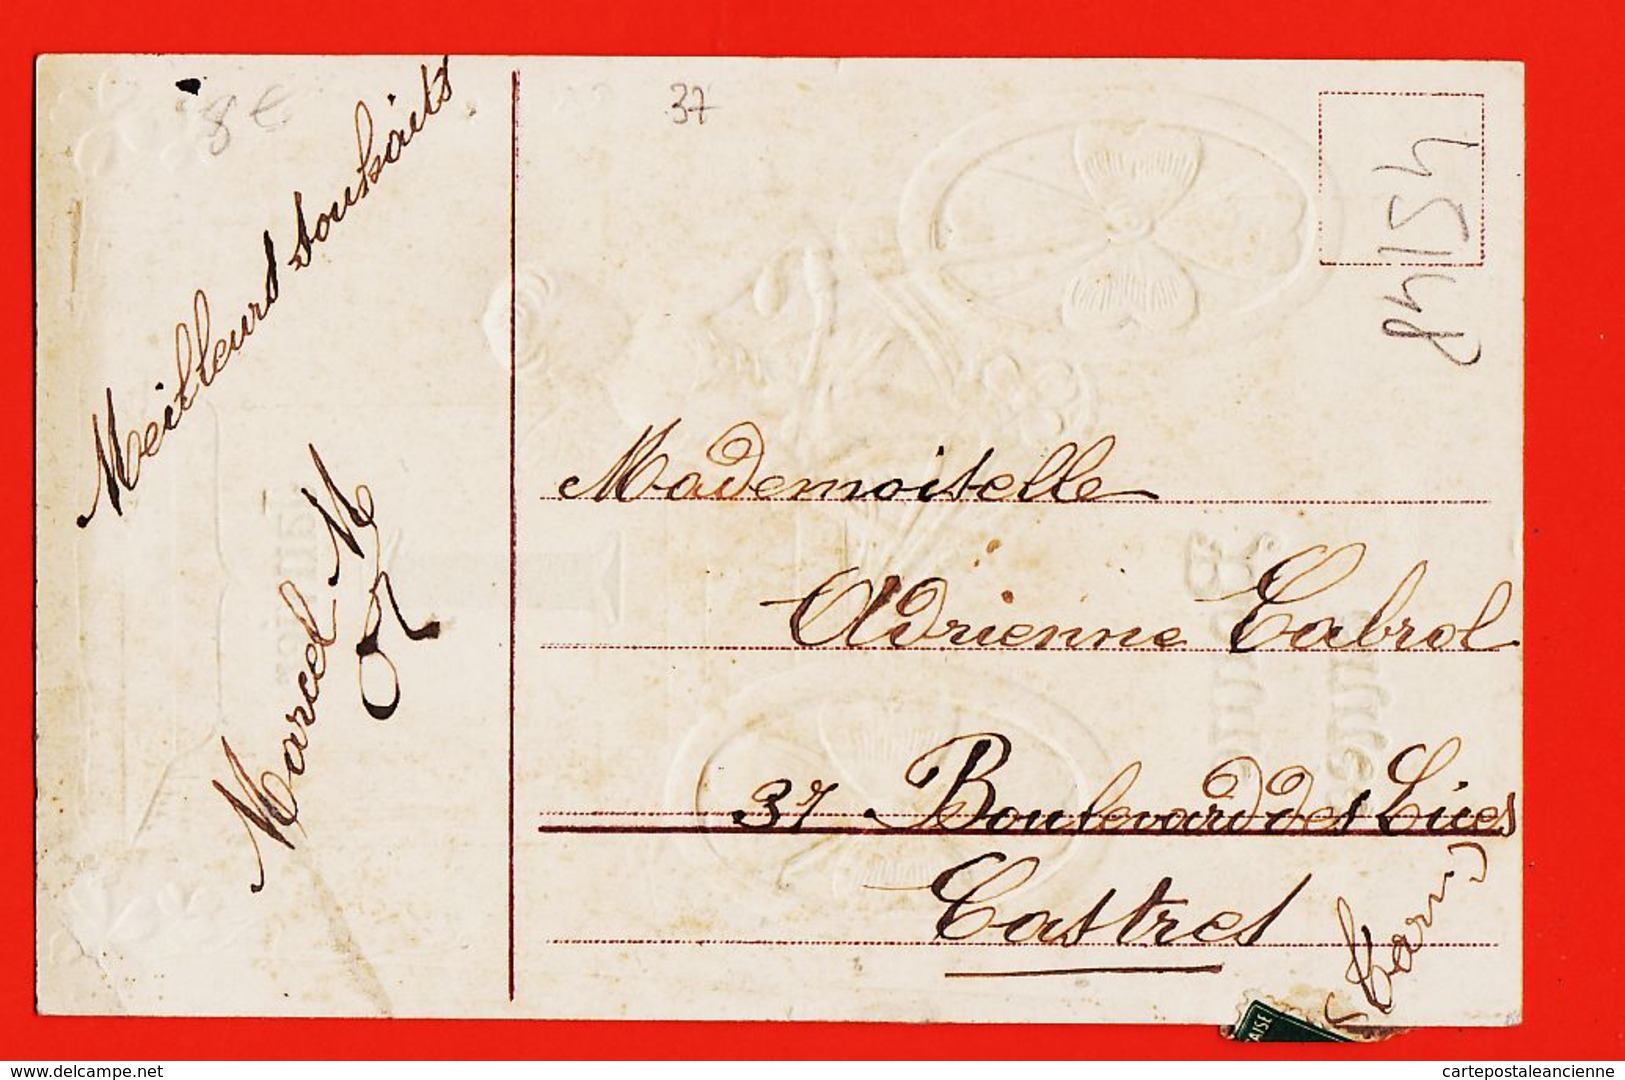 8 €
37
45148
Meilleurs souhaits
Marcel M
Mademoiselle
Adrienne Cabrol
37 Boulevard des Lices
Castres
(Tarn)
TAISE
delcampe.net
cartepostaleancienne